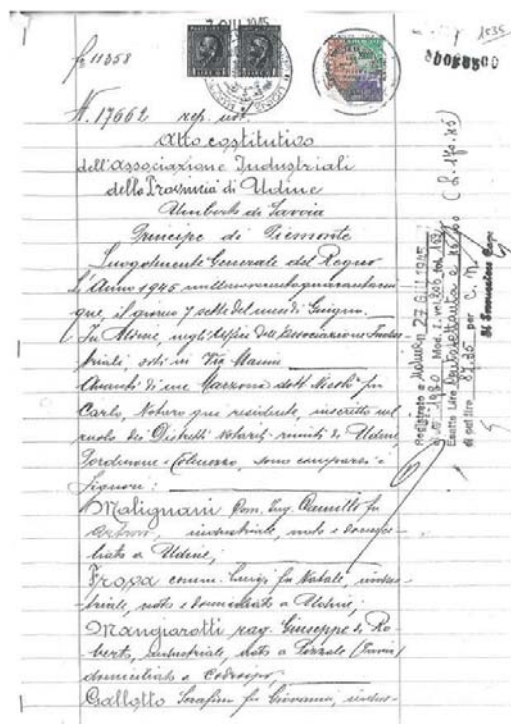 7 GIU 1945
1535
11358
N. 17662 rep. not.
Atto costitutivo
dell'Associazione Industriali
della Provincia di Udine
Umberto di Savoia
Principe di Piemonte
Luogotenente Generale del Regno
L'Anno 1945 millenovecentoquarantacin
que, il giorno 7 sette del mese di Giugno.
In Udine, negli Uffici dell'Associazione Indus
triali siti in Via Manin
Avanti di me Marzona dott. Nicolò fu
Carlo, Notaro qui residente, inscritto nel
ruolo dei Distretti Notarili riuniti di Udine,
Pordenone e Tolmezzo, sono comparsi i
Signori:
Malignani Com. Ing. Camillo fu
Arturo, industriale, nato e domici-
liato a Udine;
comm. Luigi fu Natale, indus-
triale, nato e domiciliato a Udine;
Mangiarotti rag. Giuseppe di Ro-
berto, industriale, nato a (Pavia)
domiciliato a Codroipo;
Gallotto Serafino fu Giovanni, indus-
Registrato a Udine 27 GIU 1945
Mod. I. vol. 206 fol. 152
Esatte Lire (L. 170.85)
di cui lire 87.35 per C. M.